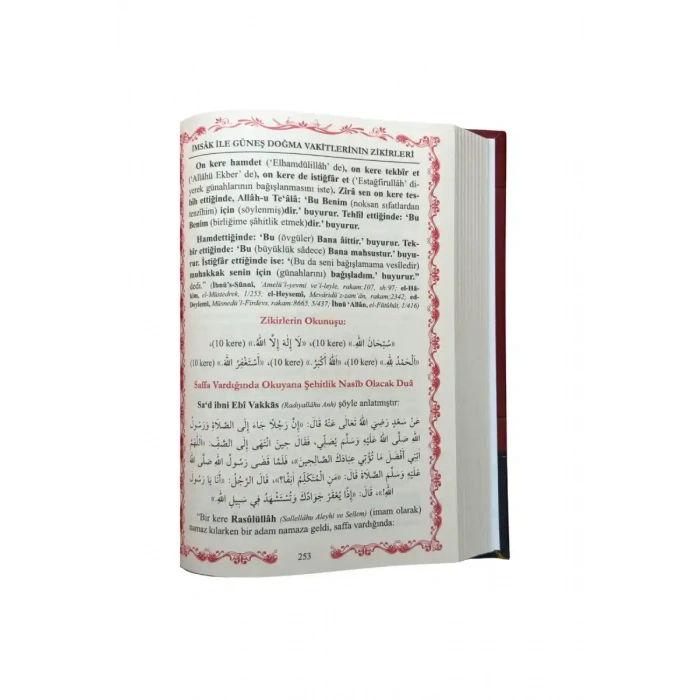 İMSÂK İLE GÜNEŞ DOĞMA VAKİTLERİNİN ZİKİRLERİ
On kere hamdet ('Elhamdülillâh' de), on kere tekbîr et
('Allâhü Ekber' de), on kere de istiğfâr et ('Estağfirullâh' di-
yerek günahlarının bağışlanmasını iste). Zîrâ sen on kere tes-
bîh ettiğinde, Allâh-u Te'âlâ: 'Bu Benim (noksan sıfatlardan
tenzîhim) için (söylenmiş)dir.' buyurur. Tehlîl ettiğinde: 'Bu
Benim (birliğime şâhitlik etmek)dir.' buyurur.
Hamdettiğinde: 'Bu (övgüler) Bana âittir.' buyurur. Tek-
bîr ettiğinde: 'Bu (büyüklük sâdece) Bana mahsustur.' buyu-
rur. İstiğfâr ettiğinde ise: '(Bu da seni bağışlamama vesîledir)
muhakkak senin için (günahlarını) bağışladım.' buyurur."
dedi." (İbnü's-Sünnî, 'Amelü'l-yevmi ve'l-leyle, rakam:107, sh:97; el-Hâ-
kim, el-Müstedrek, 1/255; el-Heysemî, Mevâridü'z-zam'ân, rakam:2342; ed-
Deylemî, Müsnedü'l-Firdevs, rakam:8665, 5/437; İbnü 'Allân, el-Fütûhât, 1/416)
Zikirlerin Okunuşu:
«سُبْحَانَ اللهِ.» (10 kere)، «لَا إِلٰهَ إِلَّا اللهُ.» (10 kere)،
«اَلْحَمْدُ لِلّٰهِ.» (10 kere)، «اَللهُ أَكْبَرُ.» (10 kere)، «أَسْتَغْفِرُ اللهَ.» (10 kere)
Saffa Vardığında Okuyana Şehitlik Nasîb Olacak Duâ
Sa'd ibni Ebî Vakkâs (Radıyallâhu Anh) şöyle anlatmıştır:
عَنْ سَعْدٍ رَضِيَ اللهُ تَعَالَى عَنْهُ قَالَ: «إِنَّ رَجُلًا جَاءَ إِلَى الصَّلَاةِ وَرَسُولُ
اللهِ صَلَّى اللهُ عَلَيْهِ وَسَلَّمَ يُصَلِّي، فَقَالَ حِينَ انْتَهَى إِلَى الصَّفِّ: «اَللّٰهُمَّ
اٰتِنِي أَفْضَلَ مَا تُؤْتِي عِبَادَكَ الصَّالِحِينَ»، فَلَمَّا قَضَى رَسُولُ اللهِ صَلَّى اللهُ
عَلَيْهِ وَسَلَّمَ الصَّلَاةَ قَالَ: «مَنِ الْمُتَكَلِّمُ اٰنِفًا؟»، قَالَ الرَّجُلُ: «أَنَا يَا رَسُولَ
اللهِ!»، قَالَ: «إِذًا يُعْقَرُ جَوَادُكَ وَتُسْتَشْهَدُ فِي سَبِيلِ اللهِ.»
"Bir kere Rasûlüllâh (Sallellâhu Aleyhi ve Sellem) (imam olarak)
namaz kılarken bir adam namaza geldi, saffa vardığında:
253